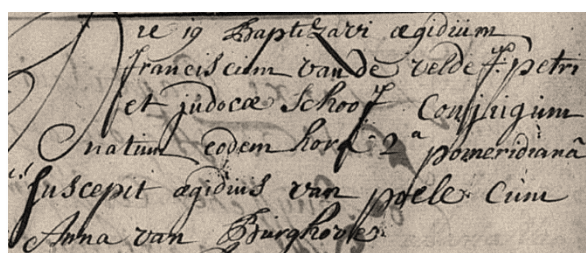 Die 19 Baptizavi ægidium
franciscum van de velde f. petri
et judocæ Schoof Conjugum
natum eodem hora 2a pomeridianâ
suscepit ægidius van poele cum
Anna van Burghove